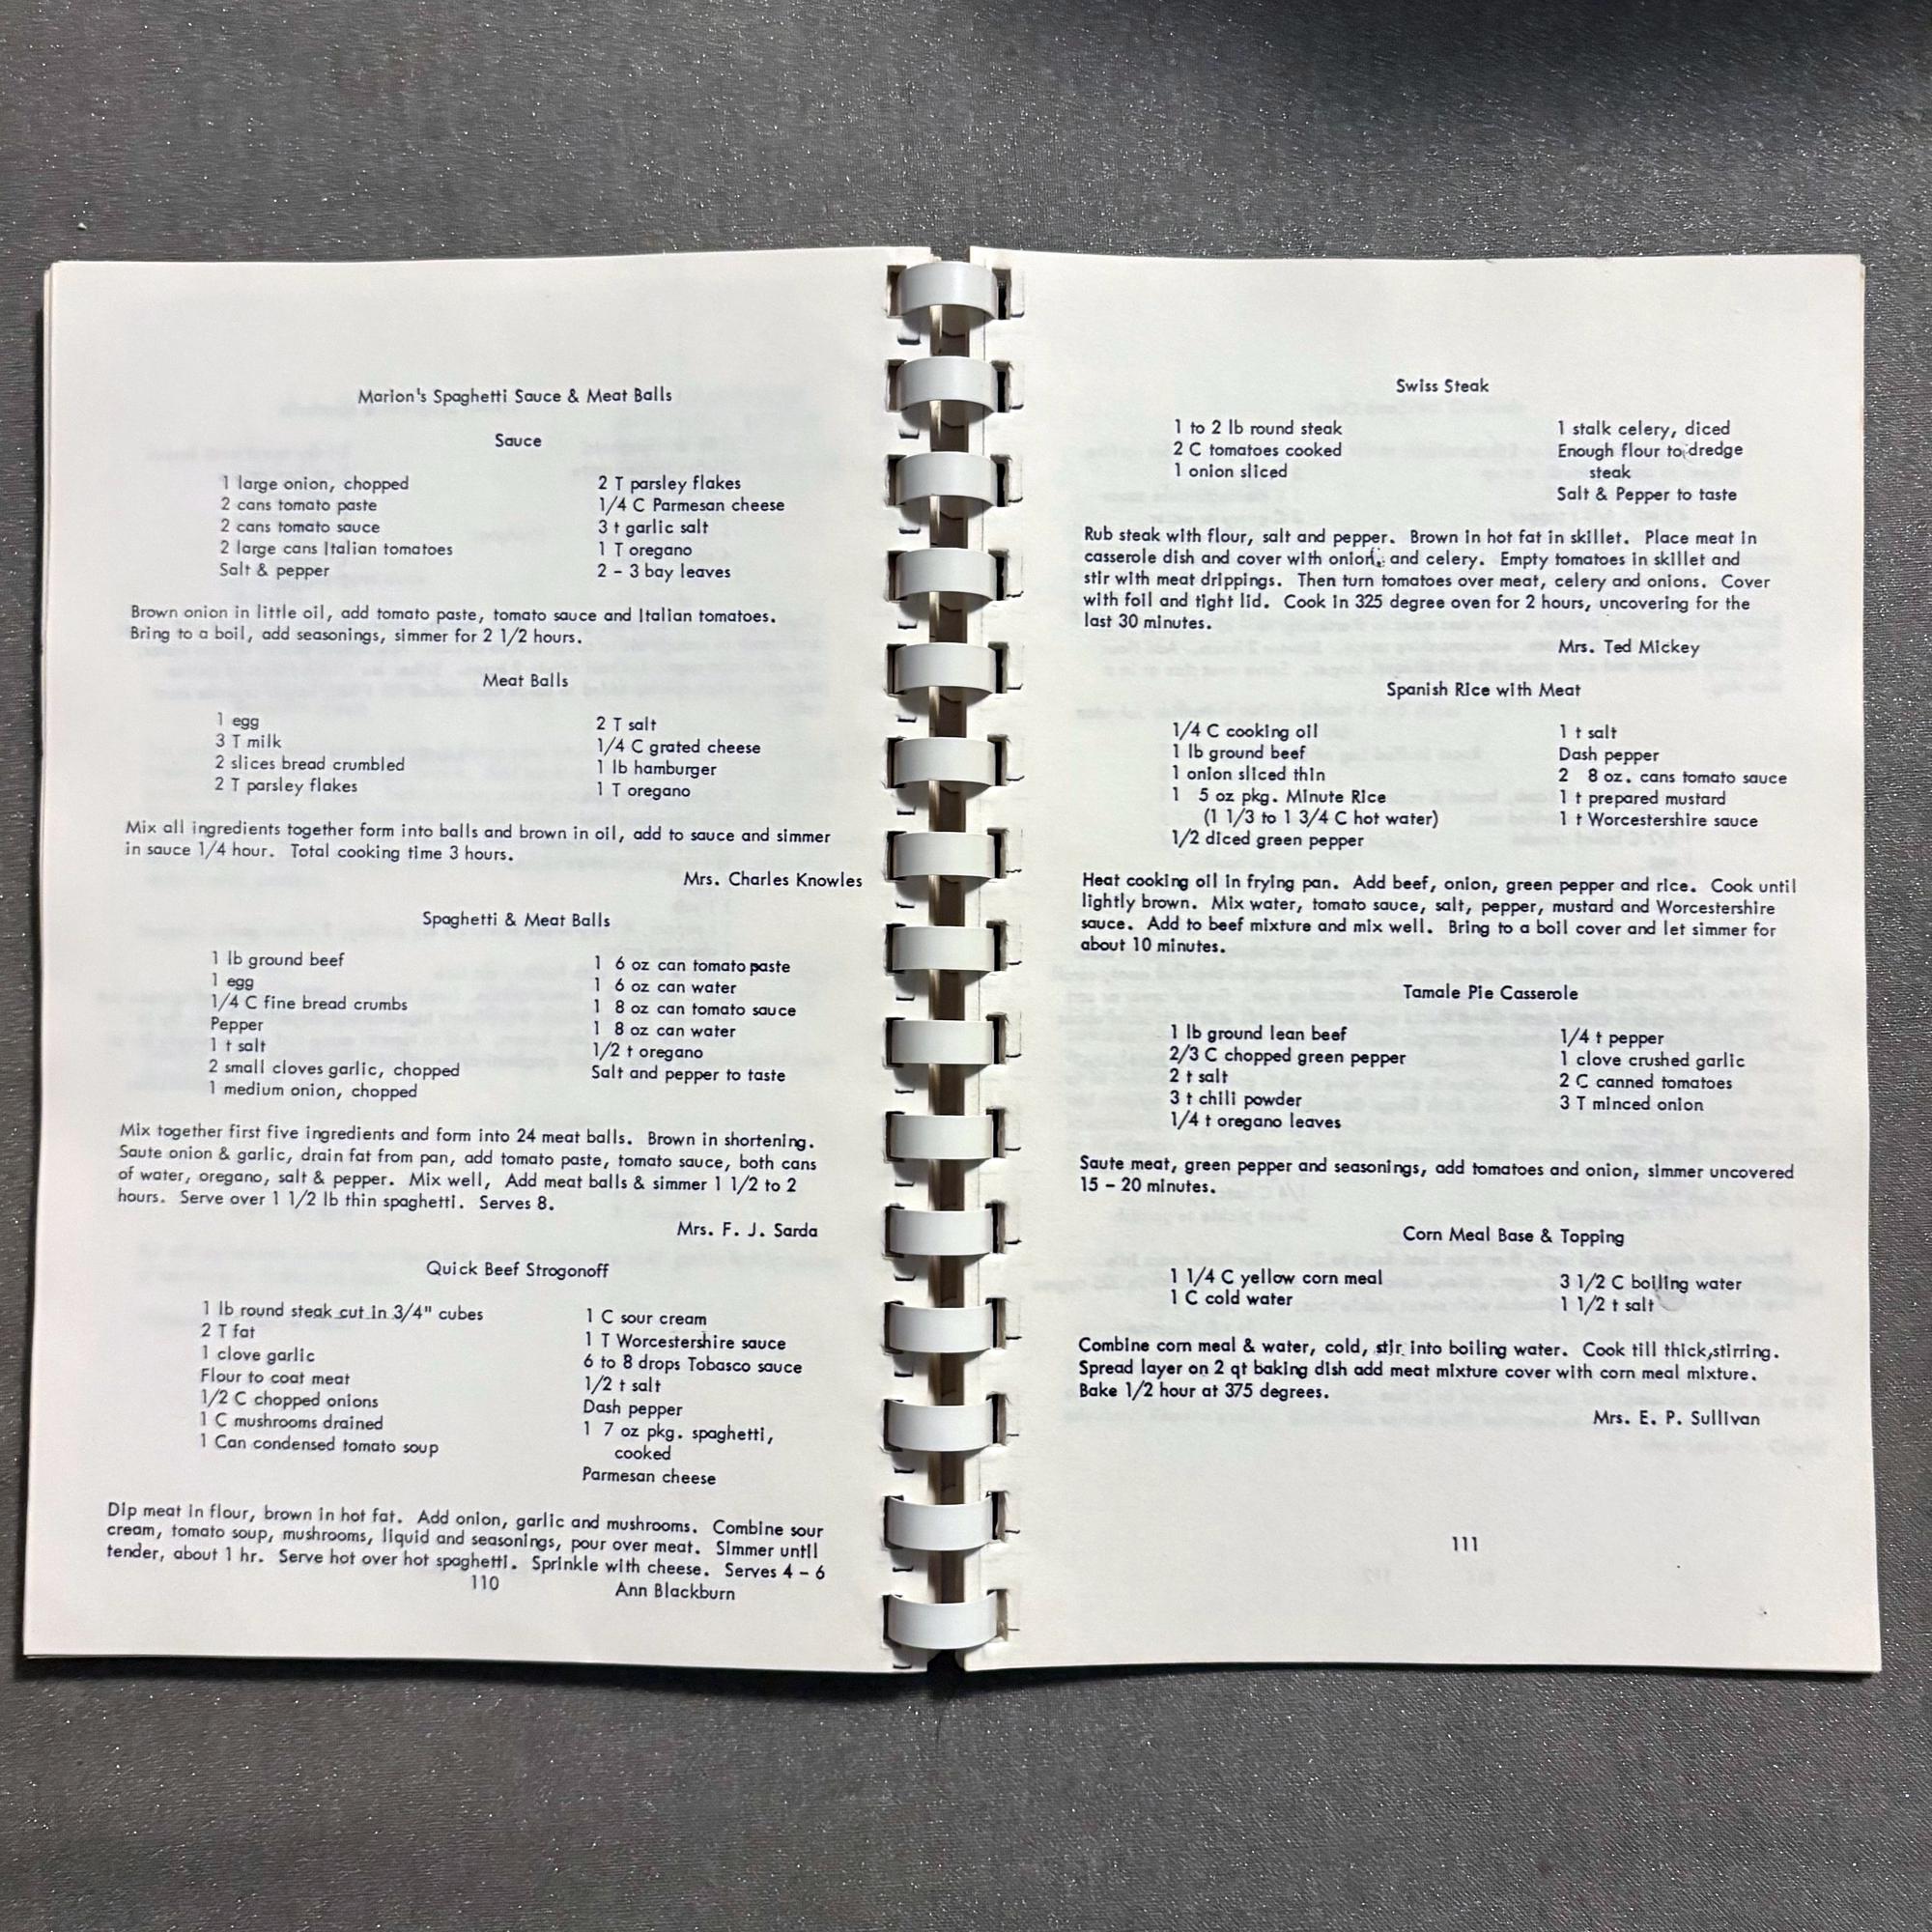 Marion's Spaghetti Sauce & Meat Balls
Sauce
1 large onion, chopped
2 cans tomato paste
2 cans tomato sauce
2 large cans Italian tomatoes
Salt & pepper
2 T parsley flakes
1/4 C Parmesan cheese
3 t garlic salt
1 T oregano
2 - 3 bay leaves
Brown onion in little oil, add tomato paste, tomato sauce and Italian tomatoes.
Bring to a boil, add seasonings, simmer for 2 1/2 hours.
Meat Balls
1 egg
3 T milk
2 slices bread crumbled
2 T parsley flakes
2 T salt
1/4 C grated cheese
1 lb hamburger
1 T oregano
Mix all ingredients together form into balls and brown in oil, add to sauce and simmer
in sauce 1/4 hour. Total cooking time 3 hours.
Mrs. Charles Knowles
Spaghetti & Meat Balls
1 lb ground beef
1 egg
1/4 C fine bread crumbs
Pepper
1 t salt
2 small cloves garlic, chopped
1 medium onion, chopped
1 6 oz can tomato paste
1 6 oz can water
1 8 oz can tomato sauce
1 8 oz can water
1/2 t oregano
Salt and pepper to taste
Mix together first five ingredients and form into 24 meat balls. Brown in shortening.
Saute onion & garlic, drain fat from pan, add tomato paste, tomato sauce, both cans
of water, oregano, salt & pepper. Mix well, Add meat balls & simmer 1 1/2 to 2
hours. Serve over 1 1/2 lb thin spaghetti. Serves 8.
Mrs. F. J. Sarda
Quick Beef Strogonoff
1 lb round steak cut in 3/4" cubes
2 T fat
1 clove garlic
Flour to coat meat
1/2 C chopped onions
1 C mushrooms drained
1 Can condensed tomato soup
1 C sour cream
1 T Worcestershire sauce
6 to 8 drops Tobasco sauce
1/2 t salt
Dash pepper
1 7 oz pkg. spaghetti,
cooked
Parmesan cheese
Dip meat in flour, brown in hot fat. Add onion, garlic and mushrooms. Combine sour
cream, tomato soup, mushrooms, liquid and seasonings, pour over meat. Simmer until
tender, about 1 hr. Serve hot over hot spaghetti. Sprinkle with cheese. Serves 4 - 6
110 Ann Blackburn
Swiss Steak
1 to 2 lb round steak
2 C tomatoes cooked
1 onion sliced
1 stalk celery, diced
Enough flour to dredge
steak
Salt & Pepper to taste
Rub steak with flour, salt and pepper. Brown in hot fat in skillet. Place meat in
casserole dish and cover with onion, and celery. Empty tomatoes in skillet and
stir with meat drippings. Then turn tomatoes over meat, celery and onions. Cover
with foil and tight lid. Cook in 325 degree oven for 2 hours, uncovering for the
last 30 minutes.
Mrs. Ted Mickey
Spanish Rice with Meat
1/4 C cooking oil
1 lb ground beef
1 onion sliced thin
1 5 oz pkg. Minute Rice
(1 1/3 to 1 3/4 C hot water)
1/2 diced green pepper
1 t salt
Dash pepper
2 8 oz. cans tomato sauce
1 t prepared mustard
1 t Worcestershire sauce
Heat cooking oil in frying pan. Add beef, onion, green pepper and rice. Cook until
lightly brown. Mix water, tomato sauce, salt, pepper, mustard and Worcestershire
sauce. Add to beef mixture and mix well. Bring to a boil cover and let simmer for
about 10 minutes.
Tamale Pie Casserole
1 lb ground lean beef
2/3 C chopped green pepper
2 t salt
3 t chili powder
1/4 t oregano leaves
1/4 t pepper
1 clove crushed garlic
2 C canned tomatoes
3 T minced onion
Saute meat, green pepper and seasonings, add tomatoes and onion, simmer uncovered
15 - 20 minutes.
Corn Meal Base & Topping
1 1/4 C yellow corn meal
1 C cold water
3 1/2 C boiling water
1 1/2 t salt
Combine corn meal & water, cold, stir into boiling water. Cook till thick,stirring.
Spread layer on 2 qt baking dish add meat mixture cover with corn meal mixture.
Bake 1/2 hour at 375 degrees.
Mrs. E. P. Sullivan
111